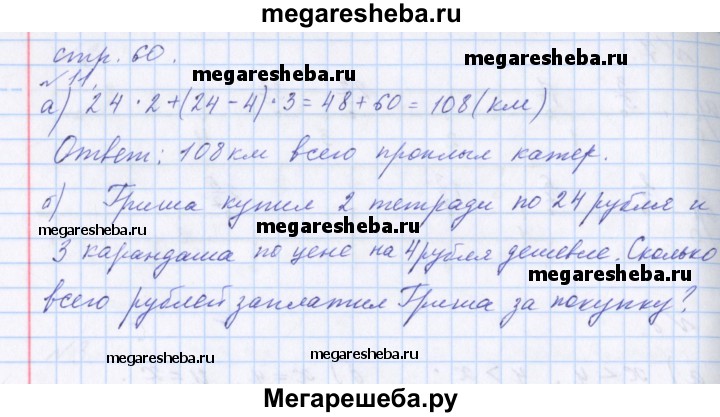 megaresheba.ru
стр. 60.
№ 11.
megaresheba.ru
а) 24 · 2 + (24 - 4) · 3 = 48 + 60 = 108 (км)
Ответ: 108 км всего проплыл катер.
megaresheba.ru
б) Гриша купил 2 тетради по 24 рубля и
megaresheba.ru
megaresheba.ru
3 карандаша по цене на 4 рубля дешевле. Сколько
megaresheba.ru
всего рублей заплатил Гриша за покупку?
megaresheba.ru
megaresheba.ru
Мегарешеба.ру